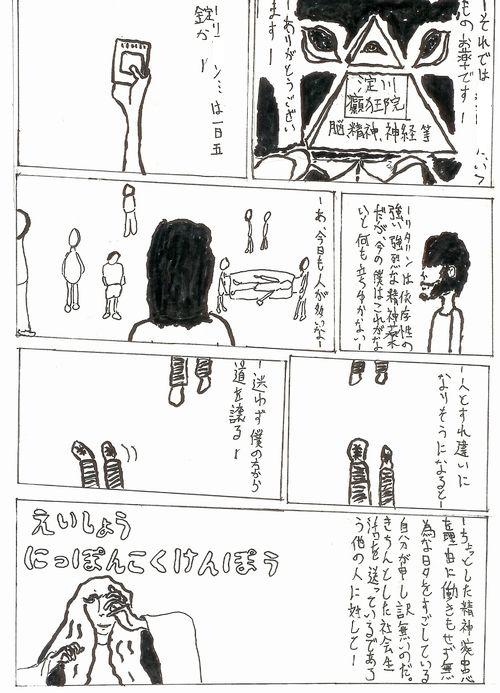 ーそれでは……
ものお薬です！ー
淀川
癲狂院
脳、精神、神経等
ーありがとうござい
ます！ー
は一日五
錠かー
ーリタリンは依存性の
強い強烈な精神薬
だが、今の僕はこれがな
いと何も立ち行かないー
ーあ、今日も人が多いなー
ー人とすれ違いに
なりそうになるとー
ー迷わず僕の方から
道を譲るー
ーちょっとした精神疾患
を理由に働きもせず無
為な日々をすごしている
自分が申し訳無いのだ。
きちんとした社会生
活を送っているであろ
う他の人に対してー
えいしょう
にっぽんこくけんぽう